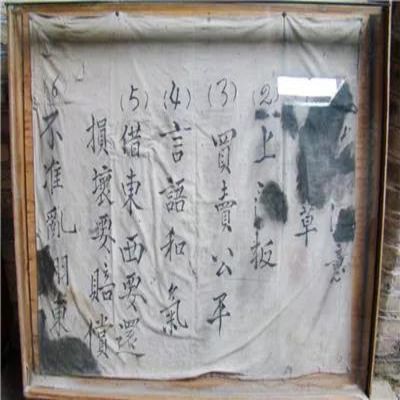 注意
草
(2)上板
(3)買賣公平
(4)言語和氣
(5)借東西要還
損壞要賠償
不准亂東